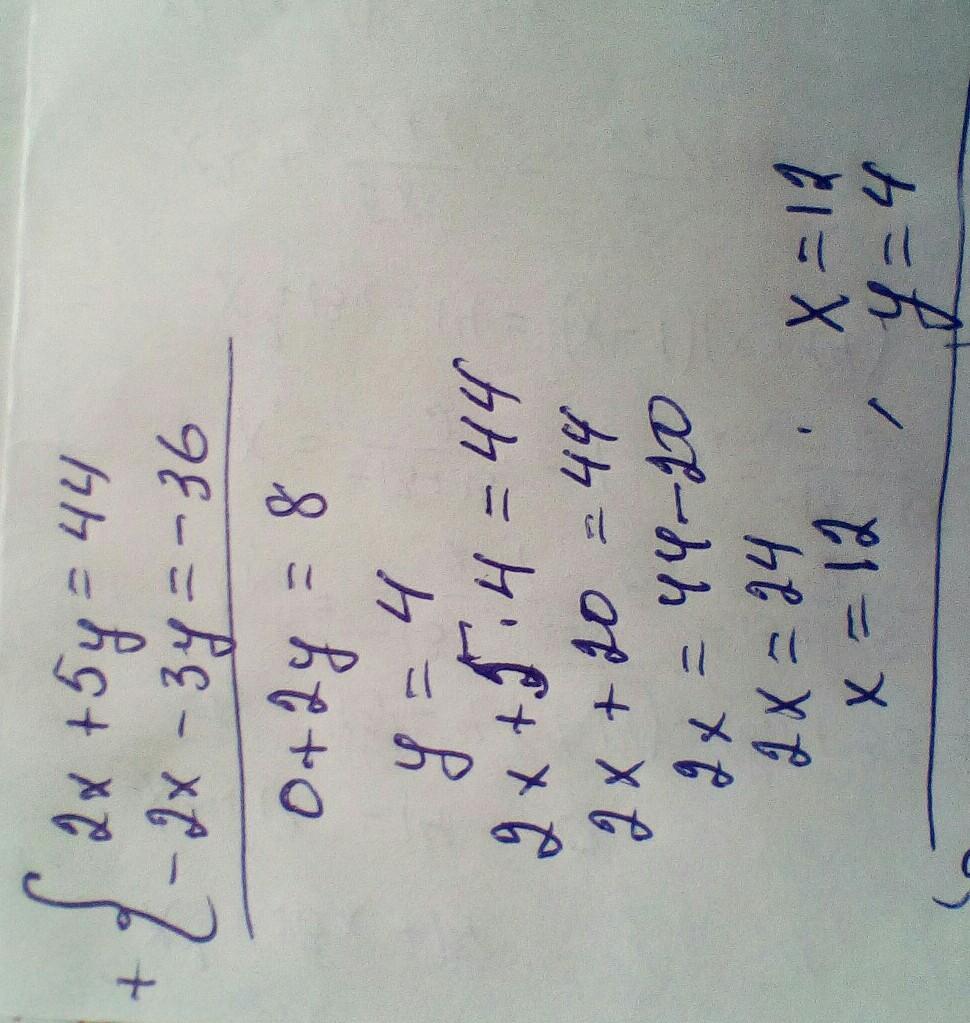 + { 2x + 5y = 44
- 2x - 3y = - 36
0 + 2y = 8
y = 4
2x + 5 · 4 = 44
2x + 20 = 44
2x = 44 - 20
2x = 24
x = 12 ,
x = 12
y = 4